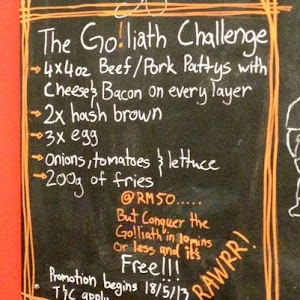 The Go!liath Challenge
→ 4x4oz Beef/Pork Pattys with
Cheese & Bacon on every layer
→ 2x hash brown
→ 3x egg
→ onions, tomatoes & lettuce
→ 200g of fries
@RM50.....
But Conquer the
Go!liath in 10mins
or less and its
Free!!!
RAWRR!
• Promotion begins 18/5/13
T&C apply